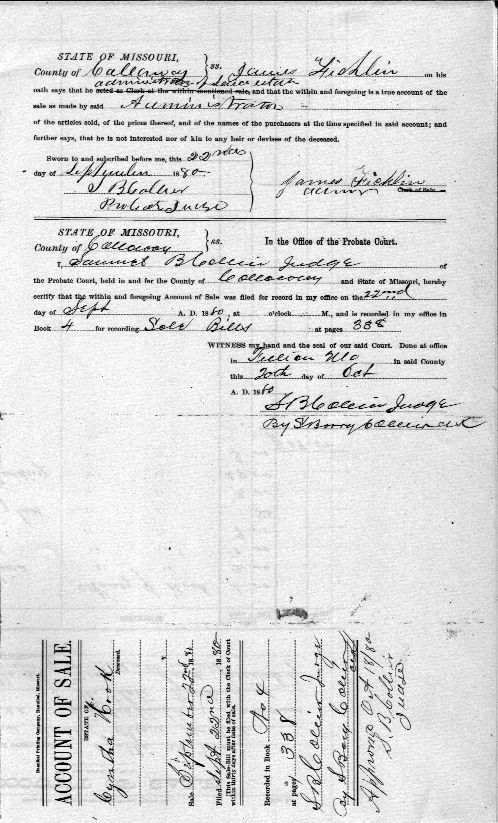 STATE OF MISSOURI,
County of Callaway } ss. James Ficklin on his
administrator of said estate
oath says that he acted as Clerk at the within mentioned sale, and that the within and foregoing is a true account of the
sale as made by said Administrator
of the articles sold, of the prices thereof, and of the names of the purchasers at the time specified in said account; and
further says, that he is not interested nor of kin to any heir or devisee of the deceased.
Sworn to and subscribed before me, this 22nd
day of September 1880
S B Collier
Probate Judge
James Ficklin
Clerk of Sale.
STATE OF MISSOURI,
County of Callaway } ss. In the Office of the Probate Court.
I, Samuel B Collier Judge of
the Probate Court, held in and for the County of Callaway and State of Missouri, hereby
certify that the within and foregoing Account of Sale was filed for record in my office on the 22nd
day of Sept A. D. 1880, at o'clock M., and is recorded in my office in
Book 4 for recording Sale Bills at pages 338
WITNESS my hand and the seal of our said Court. Done at office
in Fulton Mo in said County
this 20th day of Oct
A. D. 1880
S B Collier Judge
By S Berry Collier clk
ACCOUNT OF SALE.
ESTATE OF
Cyntha Hook
Deceased.
Sale September 22nd 1880
Filed Sept 22nd 1880
[This Sale-Bill must be filed with the Clerk of Court
within thirty days after date of sale.
Recorded in Book No 4
at pages 338
S B Collier Judge
by S Berry Collier
clk
Approved Oct 1880
S. B Collier
Judge